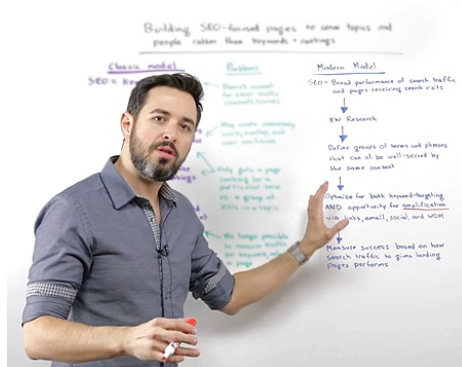 Building SEO-focused pages to serve topics and
people rather than keywords + rankings
Classic model
SEO =
Problems
Doesn't account
for other traffic
channels/sources
May create unnecessary
work, content, and user
confusion
Only gets a page
ranking for a
particular term
vs. a group of
in a topic
No longer possible
to measure traffic
per keyword, only
a page
Modern Model
SEO = Broad performance of search traffic
and pages receiving search visits
KW Research
Define groups of terms and phrases
that can all be well-served by
the same content
Optimize for both keyword-targeting
AND opportunity for amplification
via links, email, social, and WOM
Measure success based on how
search traffic to given landing
pages performs